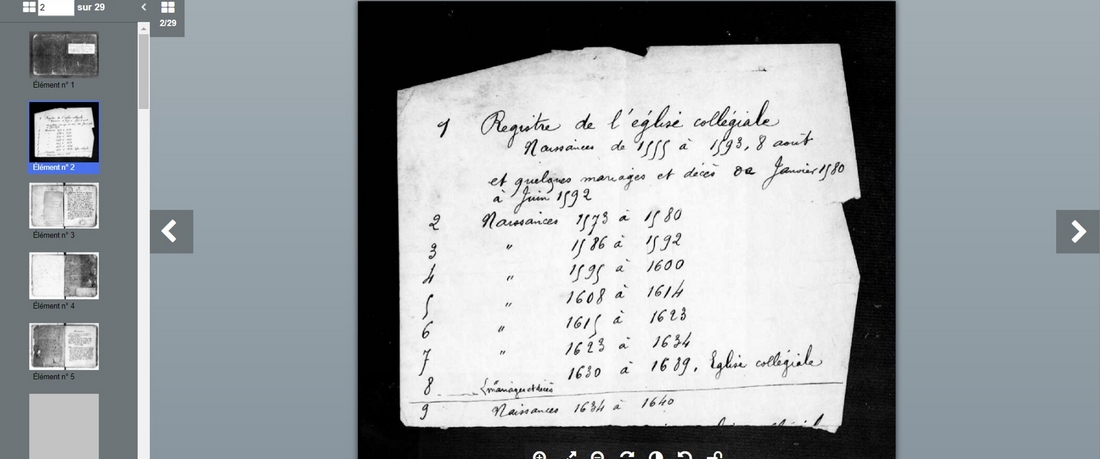 2 sur 29
2/29
Élément n° 1
Élément n° 2
Élément n° 3
Élément n° 4
Élément n° 5
1 Registre de l'église collégiale
Naissances de 1555 à 1593, 8 août
et quelques mariages et décès de Janvier 1580
à Juin 1592
2 Naissances 1573 à 1580
3 " 1586 à 1592
4 " 1595 à 1600
5 " 1608 à 1614
6 " 1615 à 1623
7 " 1623 à 1634
8 " 1630 à 1639, Eglise collégiale
mariages et décès
9 Naissances 1634 à 1640